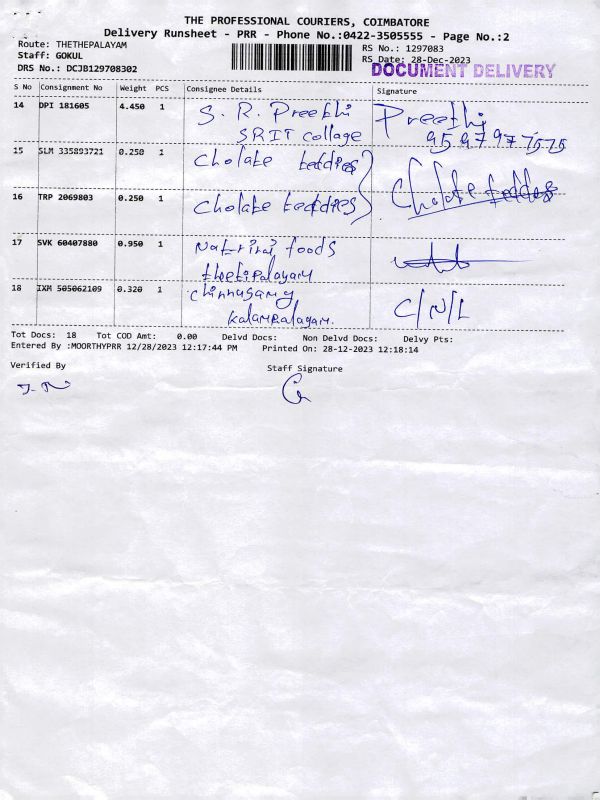 THE PROFESSIONAL COURIERS, COIMBATORE
Delivery Runsheet - PRR - Phone No.:0422-3505555 - Page No.:2
Route: THETHEPALAYAM
RS No.: 1297083
Staff: GOKUL
RS Date: 28-Dec-2023
DRS No.: DCJB129708302
DOCUMENT DELIVERY
S No Consignment No Weight PCS Consignee Details Signature
14 DPI 181605 4.450 1 S. R. Preethi Preethi
SRIT Collage 9597977575
15 SLM 335893721 0.250 1 Cholate teddies
Cholate
16 TRP 2069803 0.250 1 Cholate teddies
17 SVK 60407880 0.950 1 Natrinai foods
thethipalayam
18 IXM 505062109 0.320 1 Chinnasamy C/N/L
Kalampalayam.
Tot Docs: 18 Tot COD Amt: 0.00 Delvd Docs: Non Delvd Docs: Delvy Pts:
Entered By :MOORTHYPRR 12/28/2023 12:17:44 PM Printed On: 28-12-2023 12:18:14
Verified By
Staff Signature